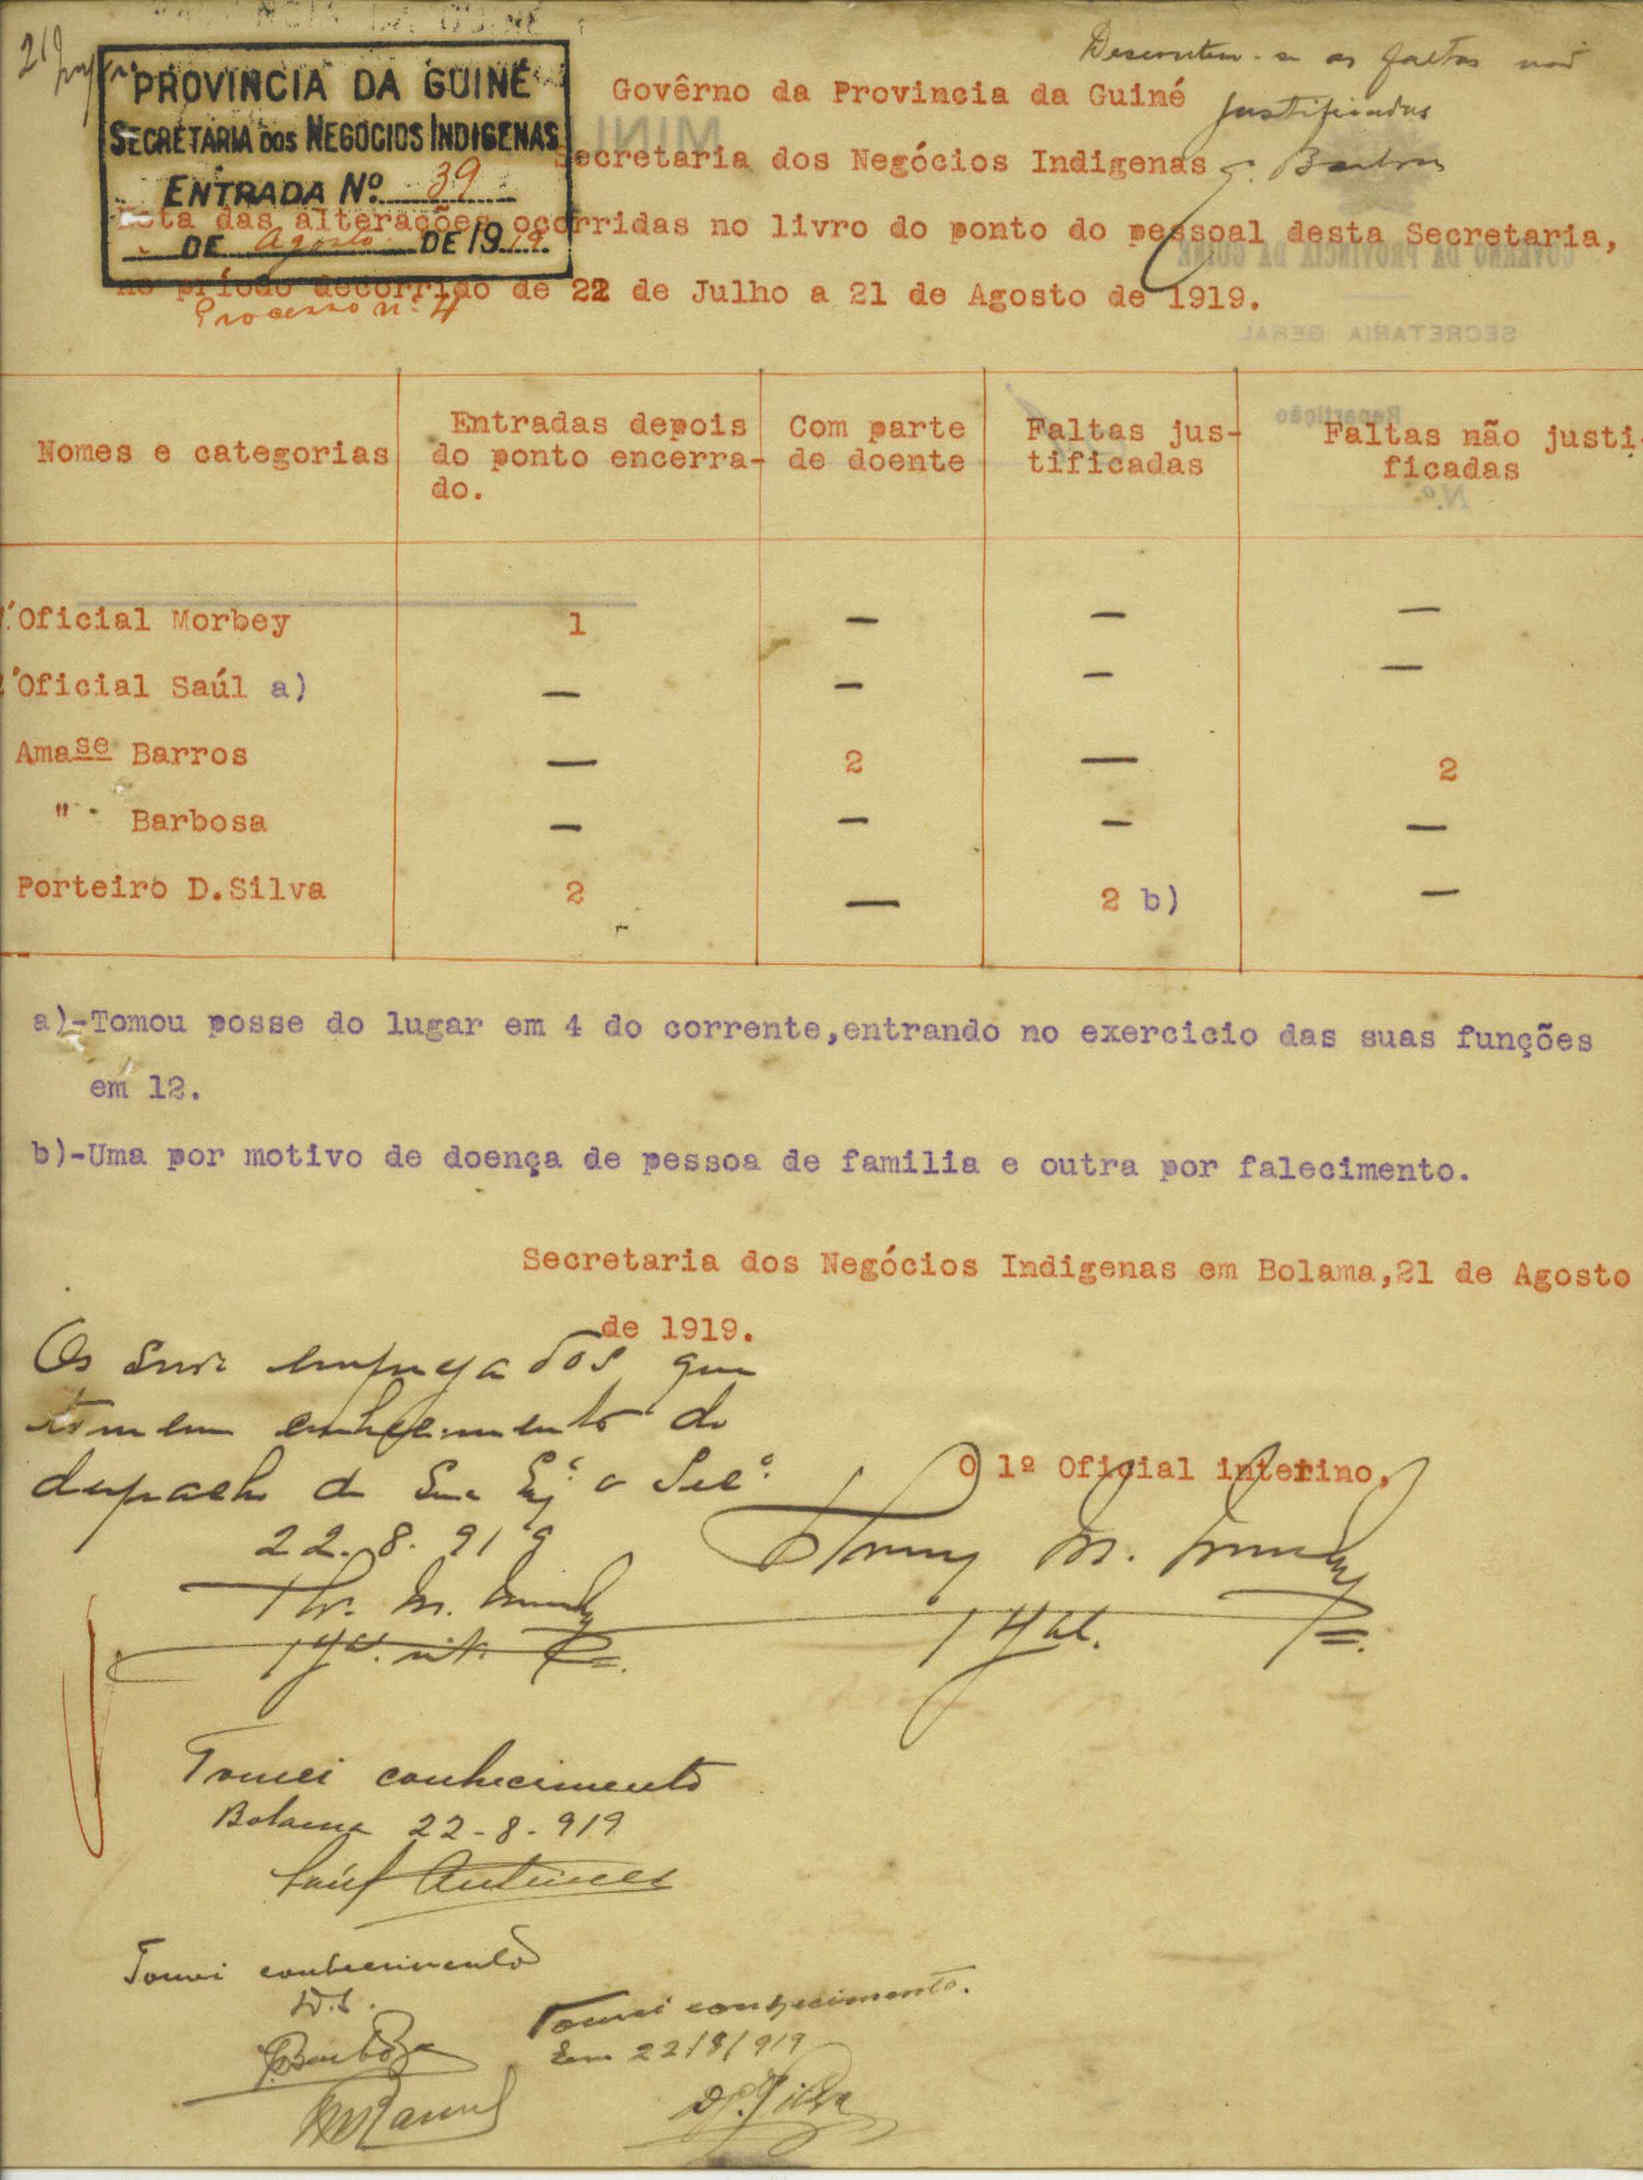 PROVINCIA DA GUINÉ
SECRETARIA DOS NEGOCIOS INDIGENAS
ENTRADA Nº 39
DE Agosto DE 1919.
Processo nº 4
Descontem-se as faltas não
justificadas
Govêrno da Provincia da Guiné
Secretaria dos Negócios Indigenas
Nota das alterações ocorridas no livro do ponto do pessoal desta Secretaria,
no príodo decorrido de 22 de Julho a 21 de Agosto de 1919.
Nomes e categorias
Entradas depois
do ponto encerra-
do.
Com parte
de doente
Faltas jus-
tificadas
Faltas não justi-
ficadas
Oficial Morbey 1 — — —
Oficial Saúl a) — — — —
Amase Barros — 2 — 2
" Barbosa — — — —
Porteiro D.Silva 2 — 2 b) —
a)-Tomou posse do lugar em 4 do corrente,entrando no exercicio das suas funções
em 12.
b)-Uma por motivo de doença de pessoa de familia e outra por falecimento.
Secretaria dos Negócios Indigenas em Bolama,21 de Agosto
de 1919.
Os empregados que
tomem conhecimento do
despacho de Sua
22-8-919
O 1º Oficial interino,
Tomei conhecimento
Bolama 22-8-919
Saúl Antunes
Tomei conhecimento
D.S.
Barboza
Tomei conhecimento.
Em 22/8/919
D. Silva